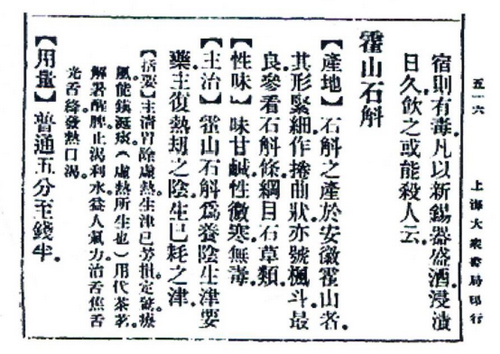 五一六　上海大衆書局印行
宿則有毒。凡以新錫器盛酒浸漬
日久飲之或能殺人云
霍山石斛
【產地】石斛之產於安徽霍山者。
其形緊細作捲曲狀亦號楓斗最
良參看石斛條綱目石草類。
【性味】味甘鹹性微寒無毒
【主治】霍山石斛爲養陰生津要
藥主復熱刧之陰生已耗之津
【括要】主清胃除虛熱生津已勞損定驚療
風能鎮涎痰（虛熱所生也）用代茶茗。
解暑醒脾止渴利水益人氣力治舌焦舌
光舌絳發熱口渴
【用量】普通五分至錢半。